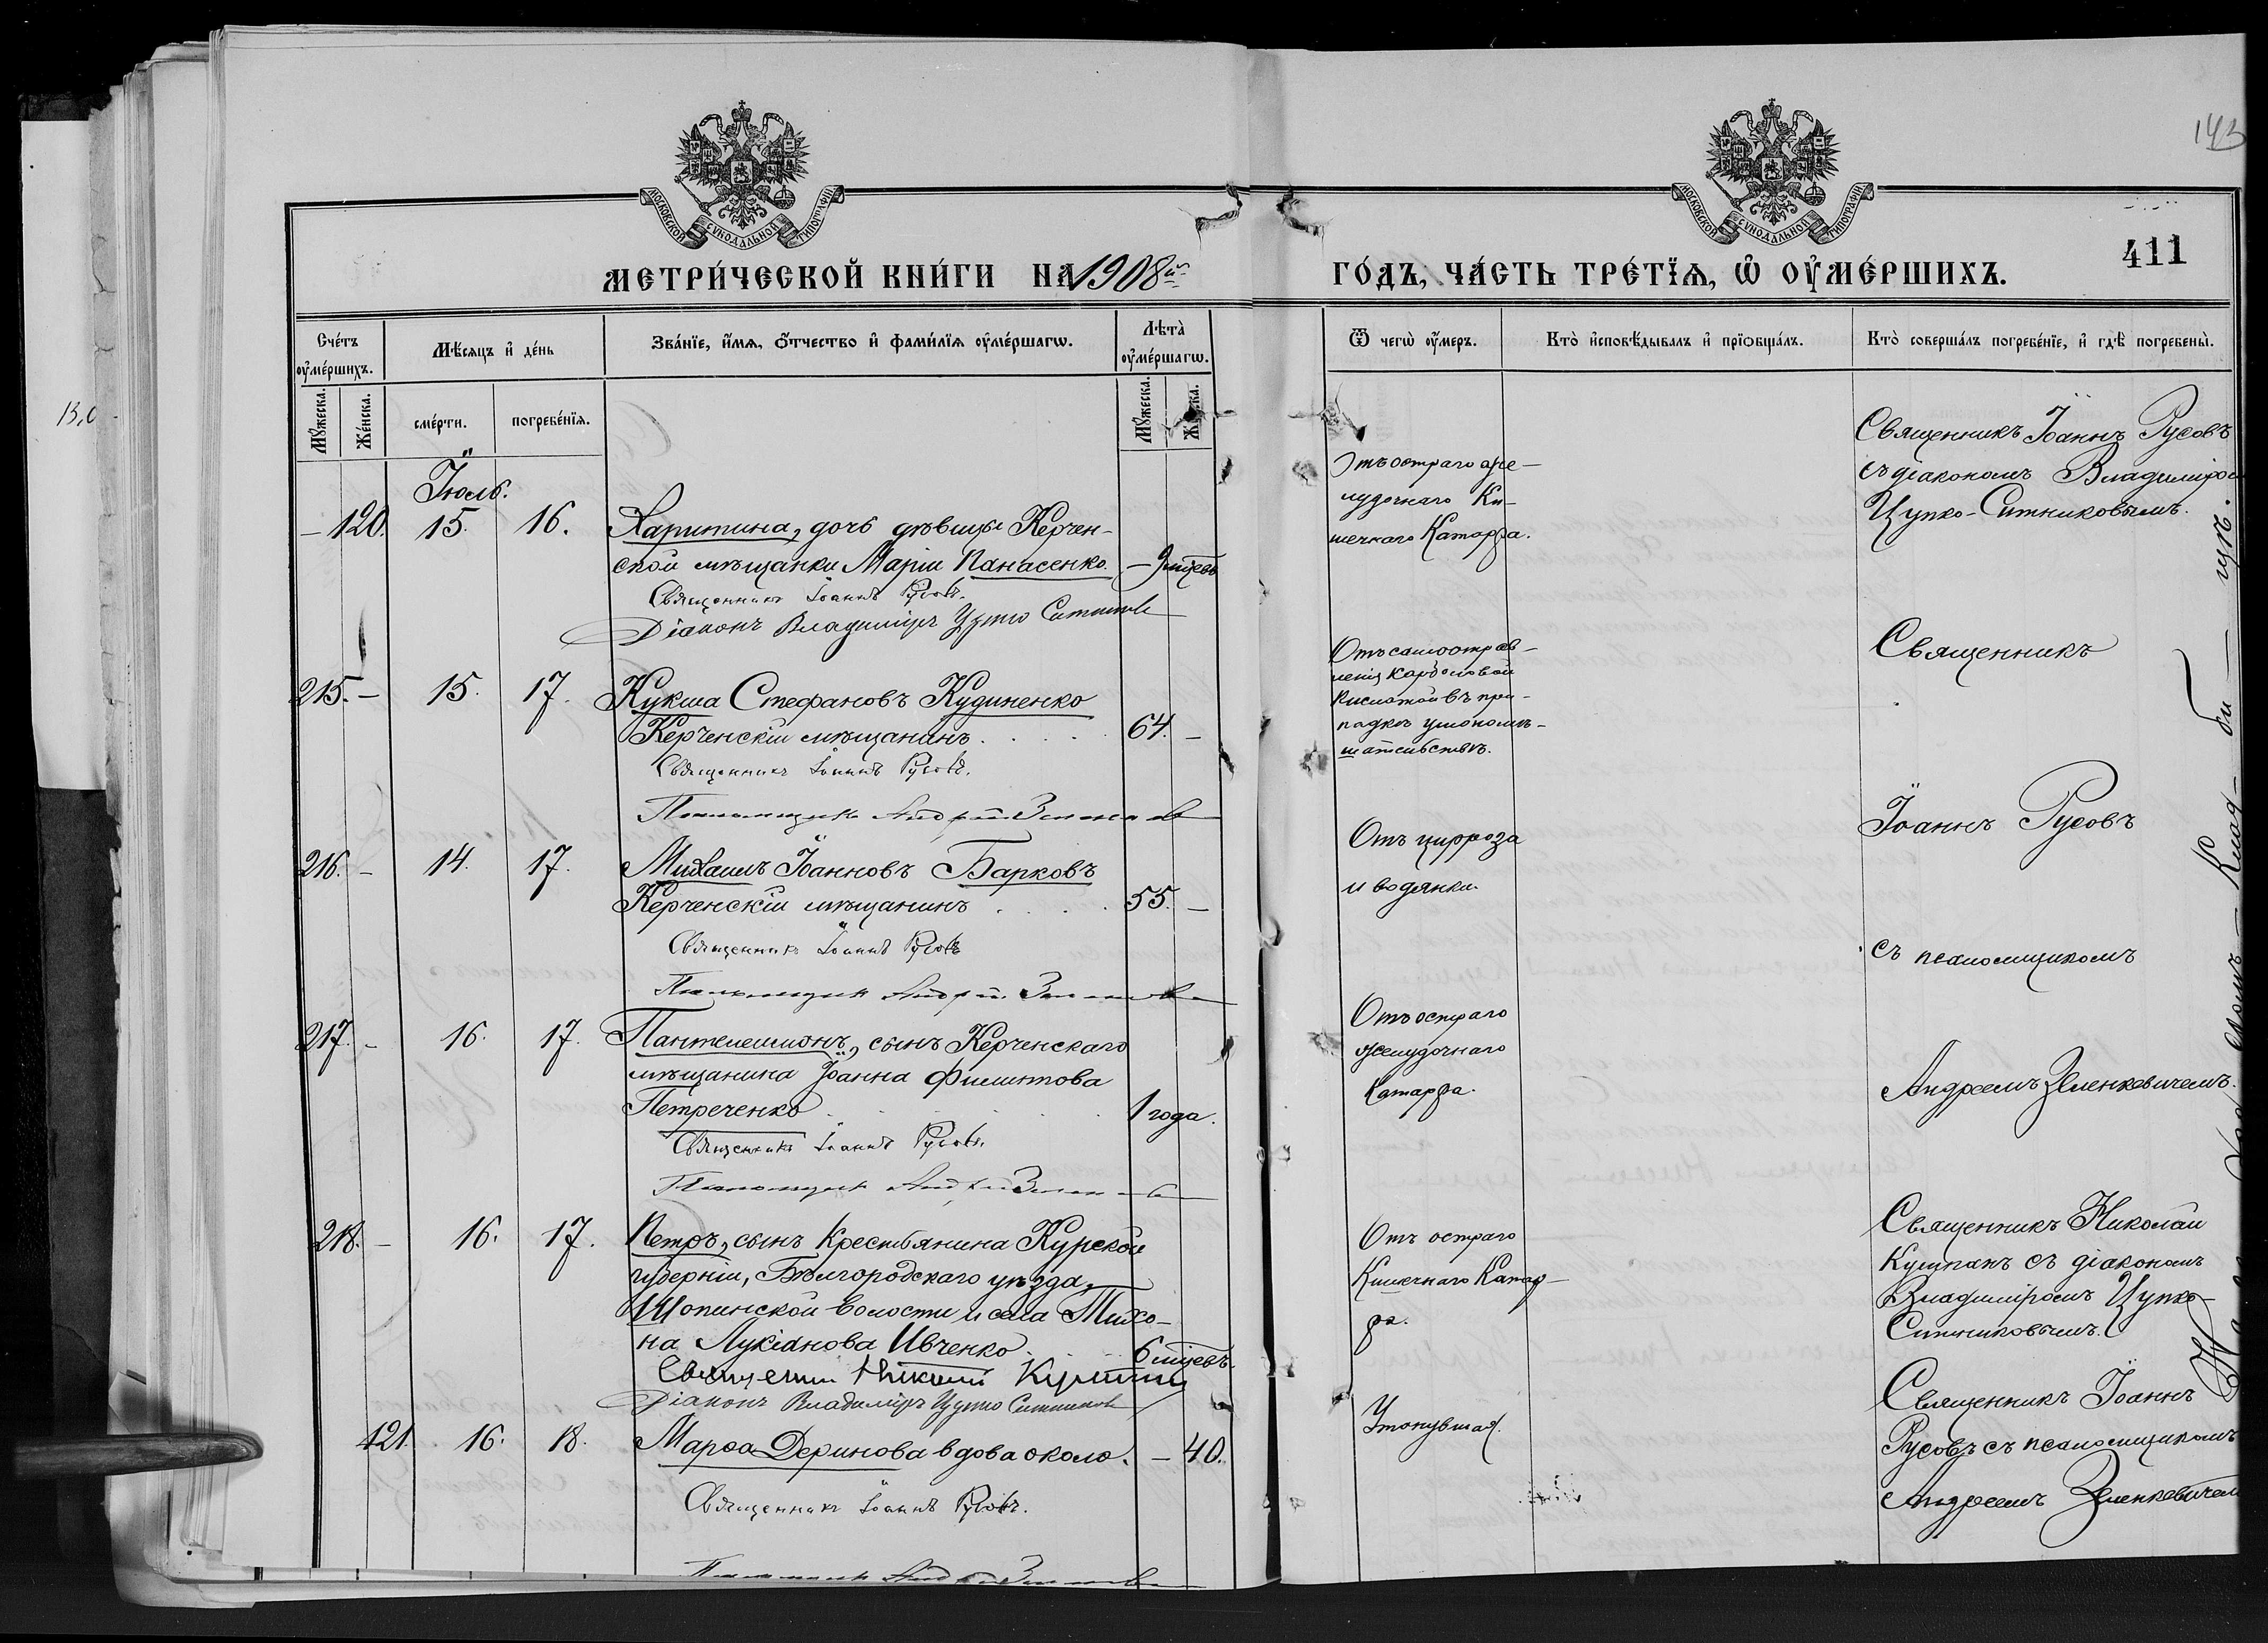 143
411
МОСКОВСКОЙ СУНОДАЛЬНОЙ ТИПОГРАФІИ
МОСКОВСКОЙ СУНОДАЛЬНОЙ ТИПОГРАФІИ
МЕТРИ́ЧЕСКОЙ КНИ́ГИ НА 1908й ГО́ДЪ, ЧА́СТЬ ТРЕ́ТЇѦ, Ѽ ОУ҆МЕ́РШИХЪ.
Сче́тъ оу҆ме́ршихъ.
Мѣ́сяцъ и҆ де́нь
Зва́нїе, и҆́мѧ, ѻ҆́тчество и҆ фами́лїѧ оу҆ме́ршагѡ.
Лѣ́та оу҆ме́ршагѡ.
Ѿ чегѡ̀ оу҆́меръ.
Кто̀ и҆сповѣ́дывалъ и҆ прїѡбща́лъ.
Кто̀ соверша́лъ погребе́нїе, и҆ гдѣ̀ погребены̀.
Мꙋ́жеска.
Же́нска.
сме́рти.
погребе́нїѧ.
Мꙋ́жеска.
Іюль.
– 120. 15. 16. Харитина, дочь дѣвицы Керчен-
ской мѣщанки Маріи Панасенко. – 9 мцевъ
Священникъ Іоаннъ Русовъ.
Діаконъ Владиміръ Цупко Ситников
Отъ остраго же-
лудочнаго Ки-
шечнаго Катарра.
Священникъ Іоаннъ Русовъ
съ діакономъ Владиміром
Цупко-Ситниковымъ.
215. – 15. 17. Кукша Стефановъ Кудиненко
Керченскій мѣщанинъ . . . . 64. –
Священникъ Іоаннъ Русовъ.
Псаломщикъ Андрей Зеленкев
Отъ самоотрав-
ленія Карболовой
Кислотой въ при-
падкѣ умопомѣ-
шательствѣ.
Священникъ
216. – 14. 17. Михаилъ Іоанновъ Барковъ
Керченскій мѣщанинъ . . . . 55. –
Священникъ Іоаннъ Русовъ
Псаломщикъ Андрей Зеленкев
Отъ цирроза
и водянки.
Іоаннъ Русовъ
съ псаломщикомъ
217. – 16. 17. Пантелеимонъ, сынъ Керченскаго
мѣщанина Іоанна Филиппова
Петреченко . . . . 1 года.
Священникъ Іоаннъ Русовъ.
Псаломщикъ Андрей Зеленкев
Отъ остраго
желудочнаго
Катарра.
Андреемъ Зеленкевичемъ.
218. – 16. 17. Петръ, сынъ Крестьянина Курской
губерніи, Бѣлгородскаго уѣзда,
Шопинской волости и села Тихо-
на Лукіанова Ивченко. 6 мцевъ.
Священникъ Николай Кушпан
Діаконъ Владиміръ Цупко Ситников
Отъ остраго
Кишечнаго Катар-
ра.
Священникъ Николай
Кушпанъ съ діакономъ
Владиміромъ Цупко-
Ситниковымъ.
121. 16. 18. Марѳа Деринова вдова около. – 40.
Священникъ Іоаннъ Русовъ.
Псаломщикъ Андрей Зеленкев
Утонувшая.
Священникъ Іоаннъ
Русовъ съ псаломщикомъ
Андреемъ Зеленкевичем